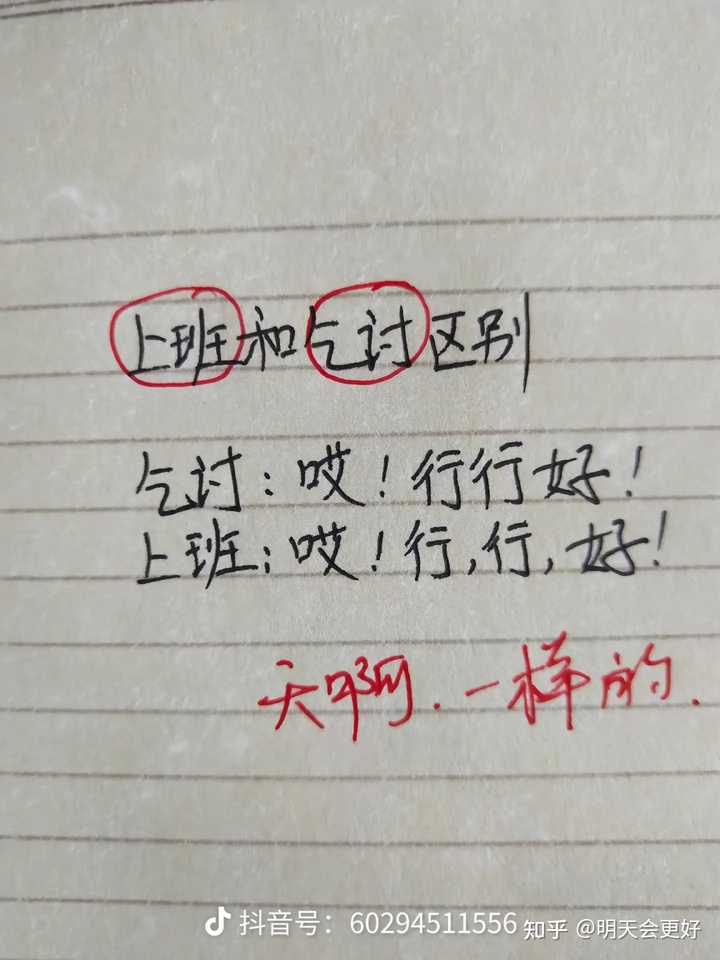 上班和乞讨区别
乞讨：哎！行行好！
上班：哎！行，行，好！
天啊．一样的．
抖音号：60294511556 知乎 @明天会更好